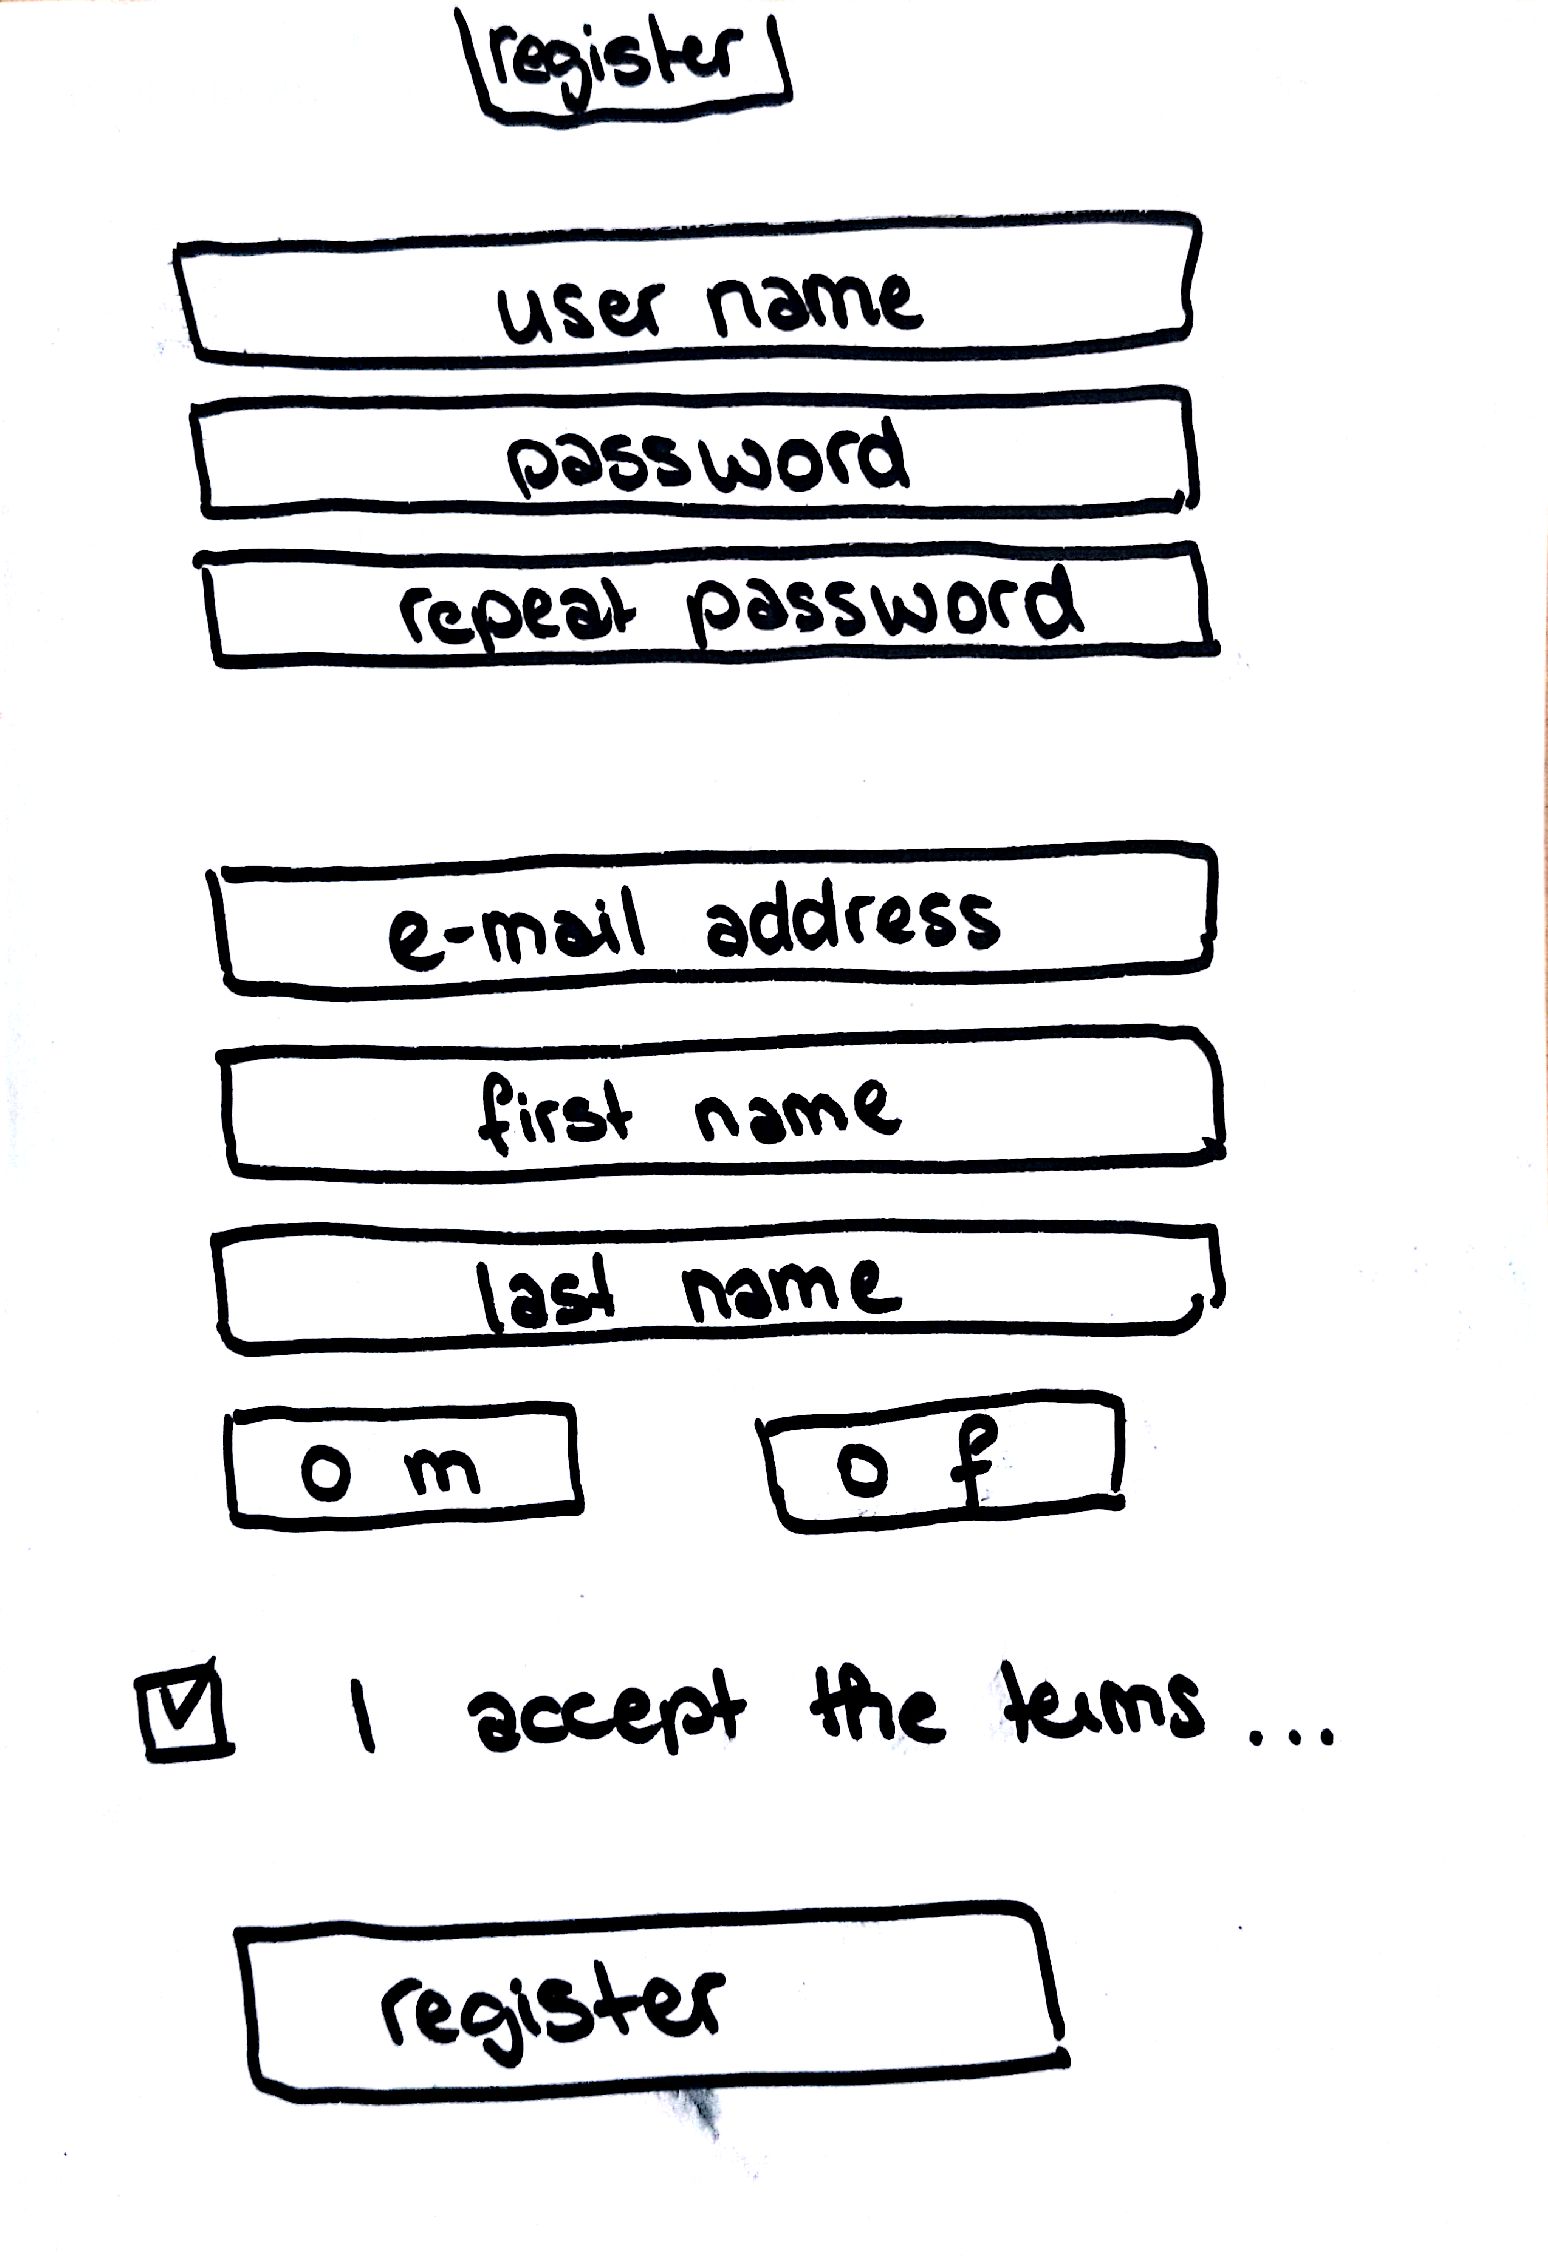 register
user name
password
repeat password
e-mail address
first name
last name
o m o f
I accept the terms...
register